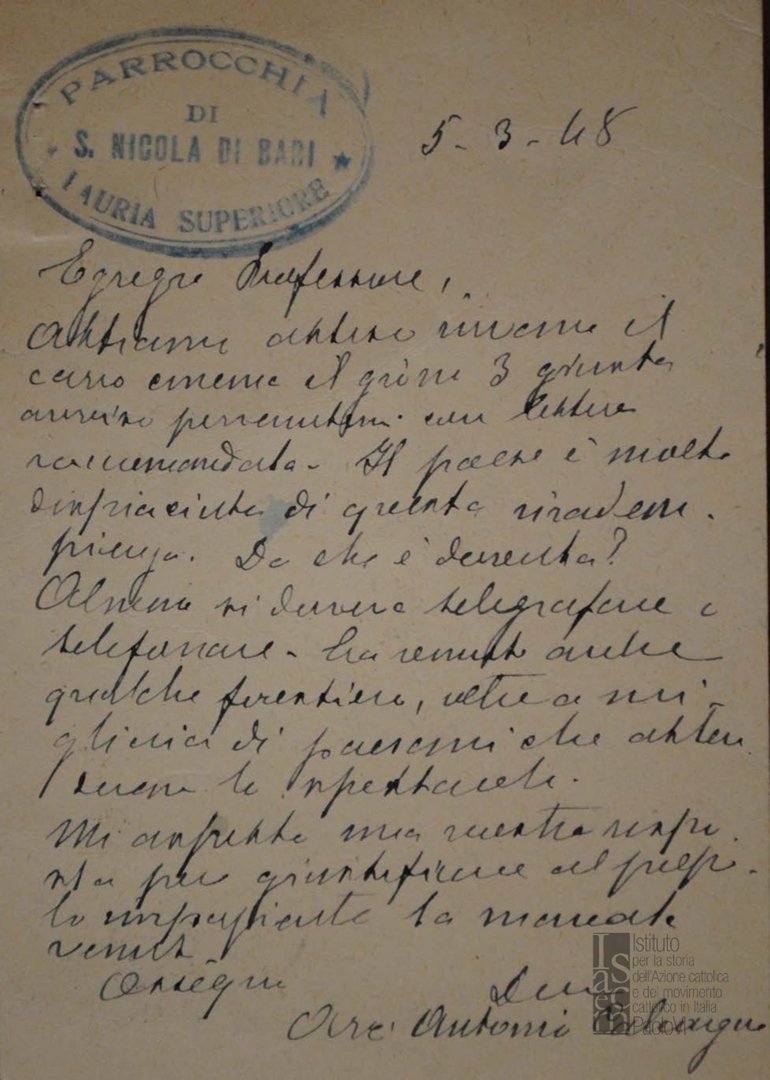 PARROCCHIA
DI
S. NICOLA DI BARI
LAURIA SUPERIORE
5-3-48
Egregio Professore,
Abbiamo atteso invano il
carro cinema il giorno 3 giusta
avviso pervenutomi con lettera
raccomandata. Il paese è molto
dispiaciuto di questa inadem-
pienza. Da che è dovuta?
Almeno si doveva telegrafare o
telefonare. Era venuto anche
qualche forestiero, oltre a mi-
gliaia di paesani che atten
devano lo spettacolo.
Mi aspetto una vostra rispo
sta per giustificare al popo-
lo impaziente la mancata
venuta
Ossequi
Arc. Antonio
Istituto
per la storia
dell'Azione cattolica
e del movimento
cattolico in Italia
Paolo VI